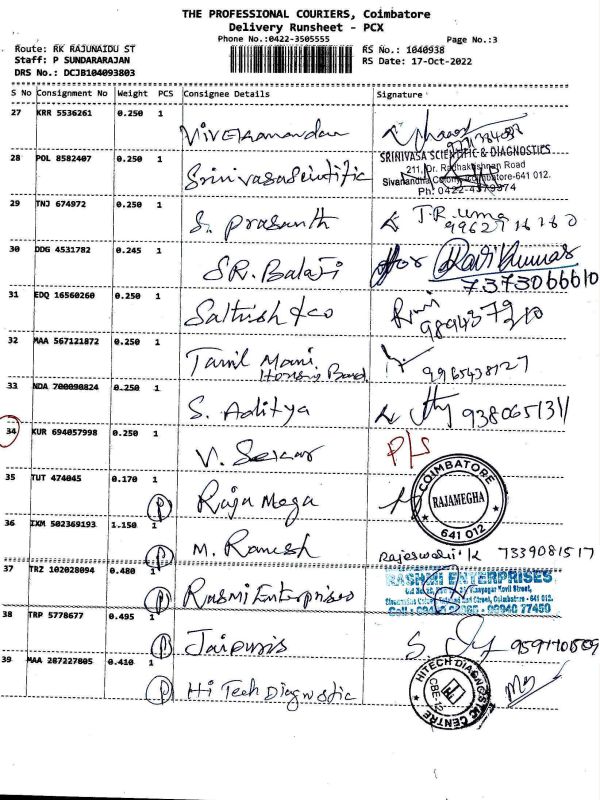 THE PROFESSIONAL COURIERS, Coimbatore
Delivery Runsheet - PCX
Phone No.:0422-3505555 Page No.:3
Route: RK RAJUNAIDU ST RS No.: 1040938
Staff: P SUNDARARAJAN RS Date: 17-Oct-2022
DRS No.: DCJB104093803
S No Consignment No Weight PCS Consignee Details Signature
27 KRR 5536261 0.250 1
Vivekanandan
28 POL 8582407 0.250 1
SRINIVASA SCIENTIFIC & DIAGNOSTICS
211, Dr. Radhakrishnan Road
Srinivasa Scientific
Sivanandha Colony, Coimbatore-641 012.
Ph: 0422-4379374
29 TNJ 674972 0.250 1
S. Prasanth T.R. uma
99627 16160
30 DDG 4531782 0.245 1
SR. Balaji for Ravikumar
7373066610
31 EDQ 16560260 0.250 1
Sathish & co
32 MAA 567121872 0.250 1
Tamil Mani 9965438127
Housing Board
33 NDA 700090824 0.250 1
S. Aditya 9380651311
34 KUR 694057998 0.250 1
V. Sekar P/S
35 TUT 474045 0.170 1
COIMBATORE
RAJAMEGHA
641 012
(P) Raja Mega
36 IXM 502369193 1.150 1
(P) M. Ramesh Rajeswari.K 7339081517
37 TRZ 102028094 0.480 1
RASHMI ENTERPRISES
(P) Rasmi Enterprises
38 TRP 5778677 0.495 1
(P) Jaipuris
39 MAA 287227805 0.410 1
HITECH DIAGNOSTIC CENTRE
CBE-12
(P) Hi Tech Diagnostic